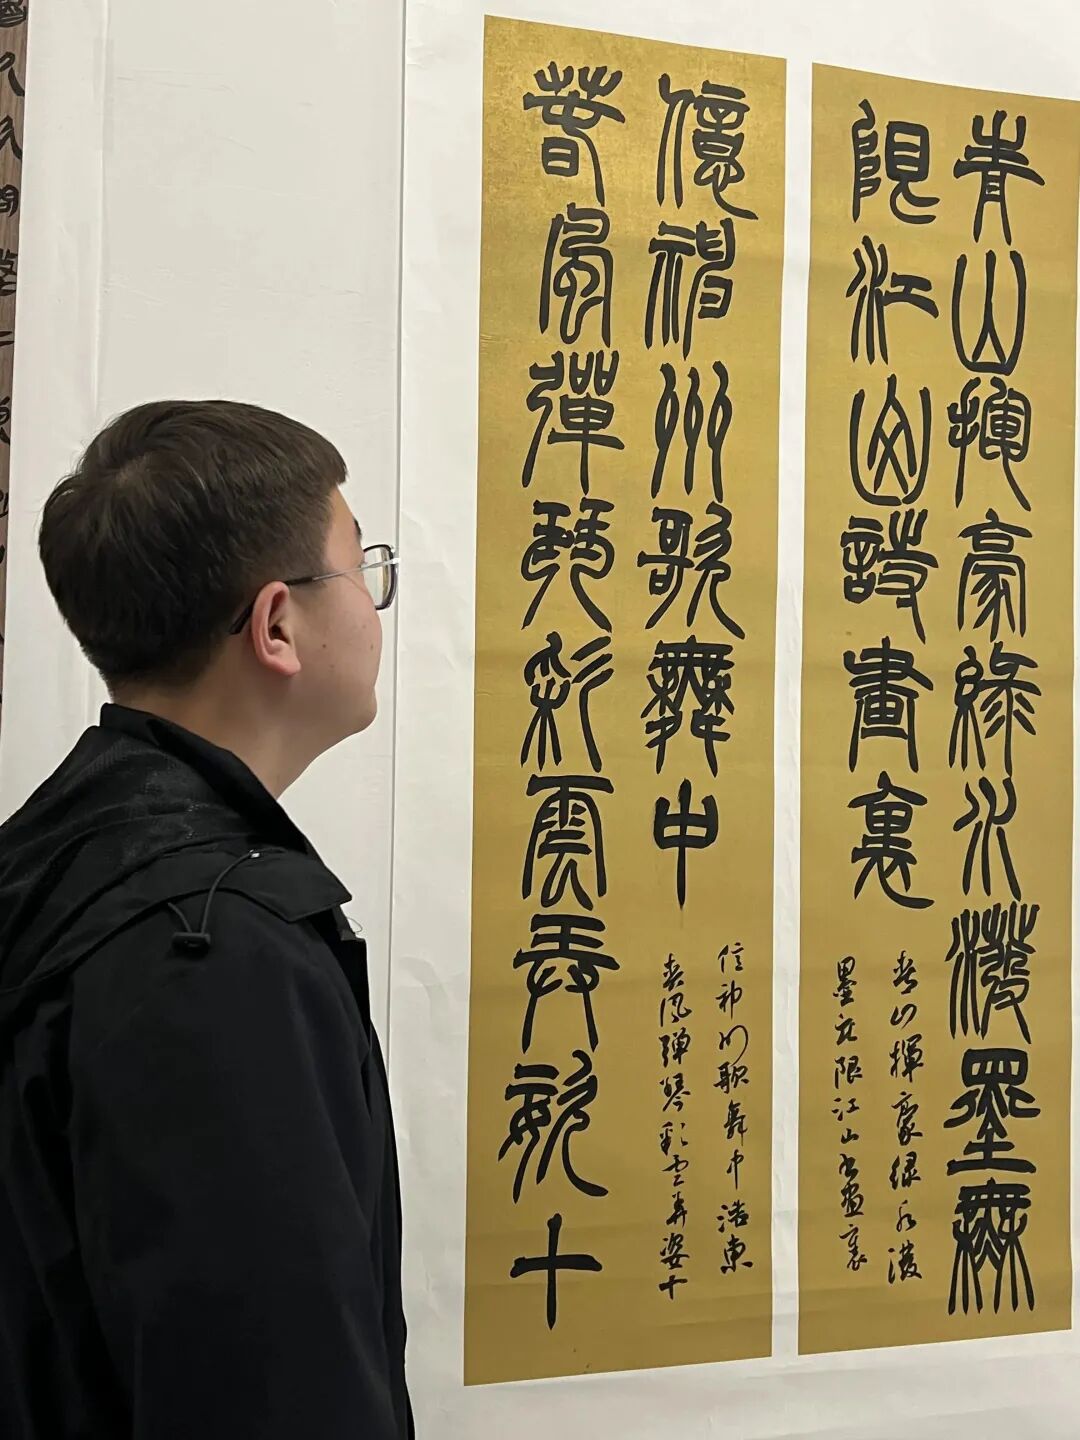 青山揮豪綠水潑墨無
限江山詩畫裏
青山揮豪绿水潑
墨无限江山畫裏
春風彈琴彩雲弄姿十
億神州歌舞中
春风弹琴彩雲弄姿十
神州歌舞中浩東